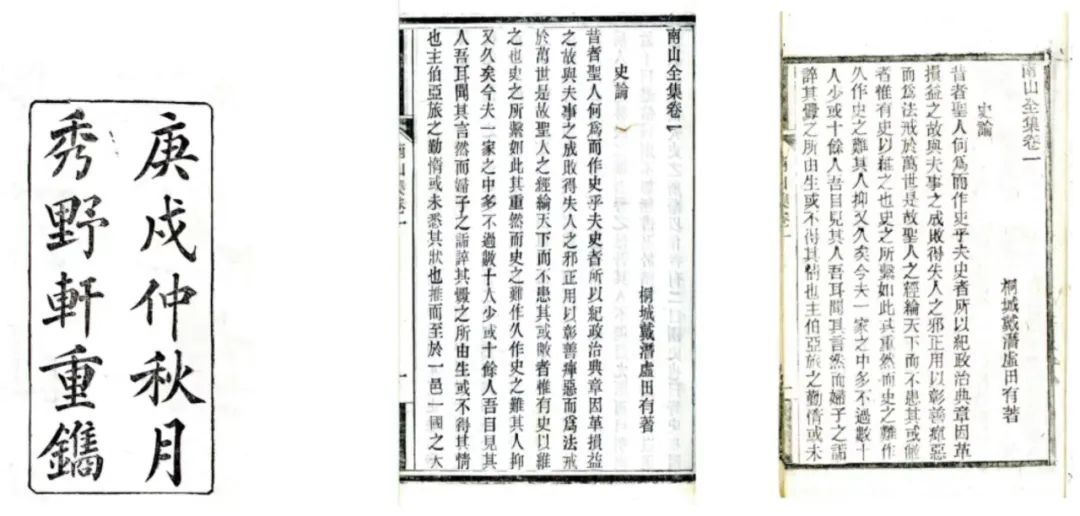 庚戍仲秋月
秀野軒重鐫
南山全集卷一
桐城戴潛虛田有著
史論
昔者聖人何爲而作史乎夫史者所以紀政治典章因革損益
之故與夫事之成敗得失人之邪正用以彰善癉惡而爲法戒
於萬世是故聖人之經綸天下而不患其或敗者惟有史以維
之也史之所繫如此其重然而史之難作久作史之難其人抑
又久矣今夫一家之中多不過數十人少或十餘人吾目見其
人吾耳聞其言然而婦子之詬誶其釁之所由生或不得其情
也主伯亞旅之勤惰或未悉其狀也推而至於一邑一國之大
南山集卷一
一
南山全集卷一
桐城戴潛虛田有著
史論
昔者聖人何爲而作史乎夫史者所以紀政治典章因革
損益之故與夫事之成敗得失人之邪正用以彰善癉惡
而爲法戒於萬世是故聖人之經綸天下而不患其或
者惟有史以維之也史之所繫如此其重然而史之難作
久作史之難其人抑又久矣今夫一家之中多不過數十
人少或十餘人吾目見其人吾耳聞其言然而婦子之詬
誶其釁之所由生或不得其情也主伯亞旅之勤惰或未
南山集卷一